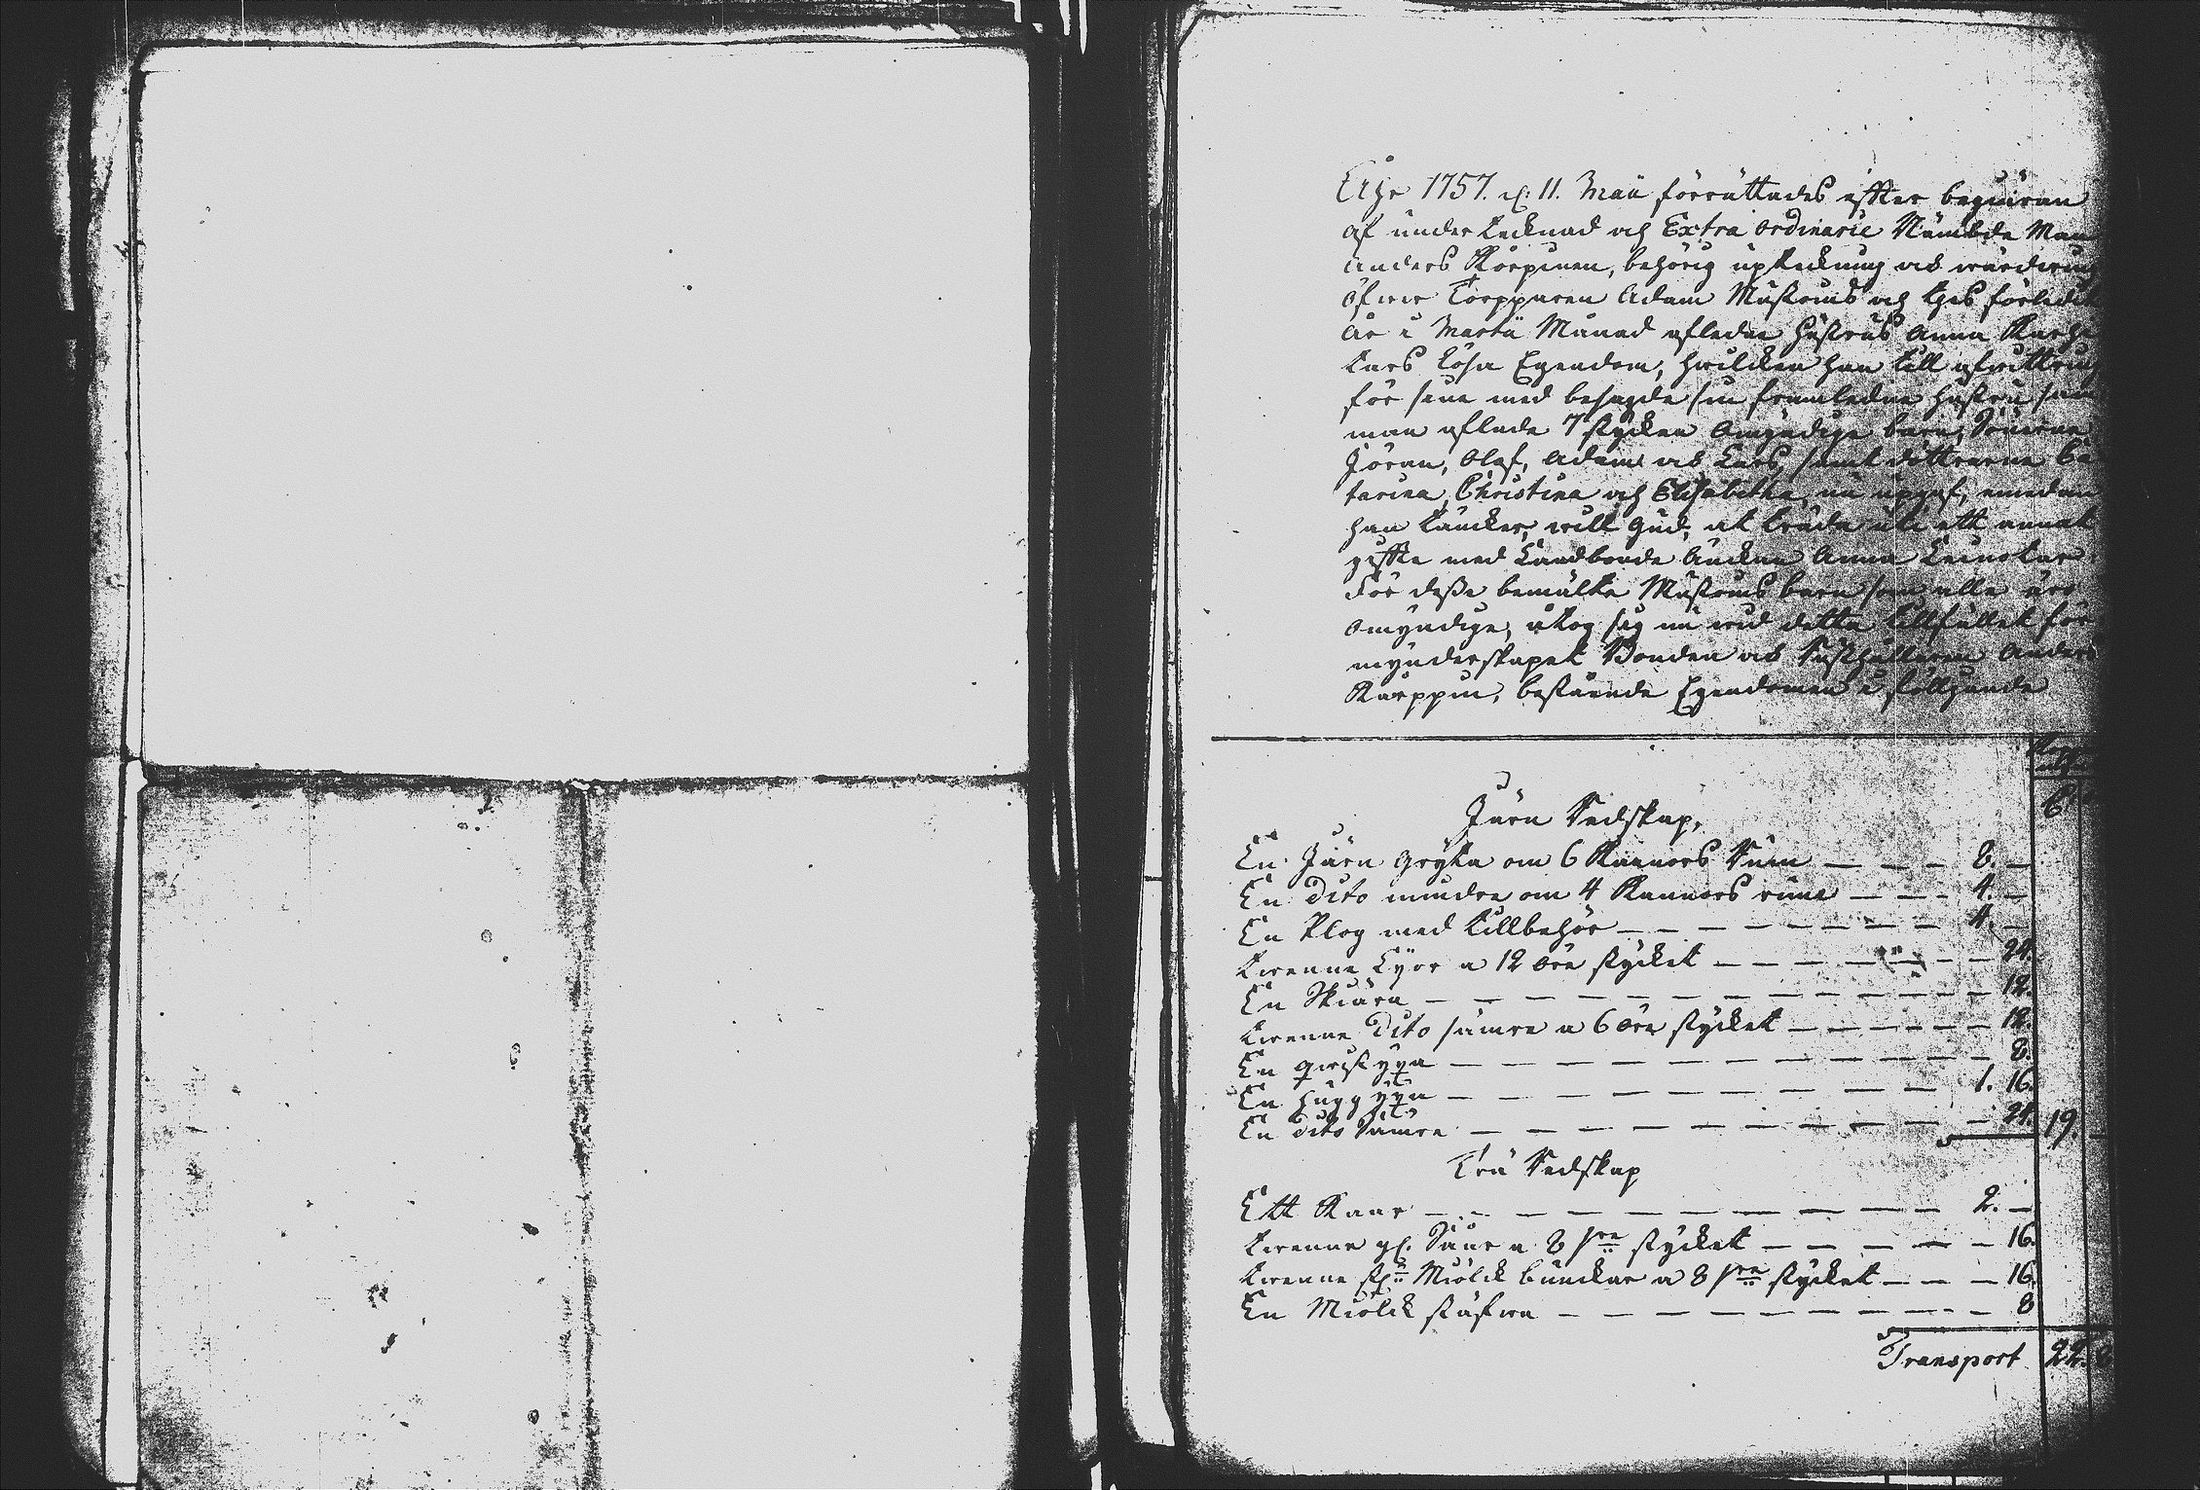 Åhr 1757. d. 11. Maii förrättades effter begiäran
af underteknad och Extra ordinarie Nämbde Man
Anders Korpinen, behörig upteckning och wärdering
öfwer Torpparen Adam Mustoins och thes förledit
år i Martii Månad afledne hustrus Anna Karhu
tars lösa Egendom, hwilcken han till afwittring
för sine med besagde sin framledne hustru sam
man aflade 7 stycken omyndige barn, Sönerne
Jöran, Olof, Adam och Lars, samt döttrarne Ca
tarina, Christina och Elisabetha, nu upgaf, emedan
han täncker, will Gud, at träda uti ett annat
giffte med Landbonde Änckan Anna Leinotar
För desse bemälte Mustoins barn som alle äro
omyndige, åtog sig nu wid detta tillfället för
mynderskapet Bonden och Rusthållaren Anders
Karppin, bestående Egendomen iföllgande
Järn Redskap,
En Järn Gryta om 6 Kannors Rum 8.
En Dito mindre om 4 Kannors rum 4.
En Plog med tillbehör 4.
twenne Lyor a 12 öre stycket 24.
En Skiära 12.
twenne Dito sämre a 6 öre stycket 12.
En qwist yxa 8.
En hugg yxa 1. 16.
En Dito Sämre 24. 19.
Trä Redskap
Ett Kaar 2.
twenne gl. Såar a 8 öre stycket 16.
twenne st. Miölck bunckar a 8 öre stycket 16.
En Miölck stäfwa 8
Transport 22. 8